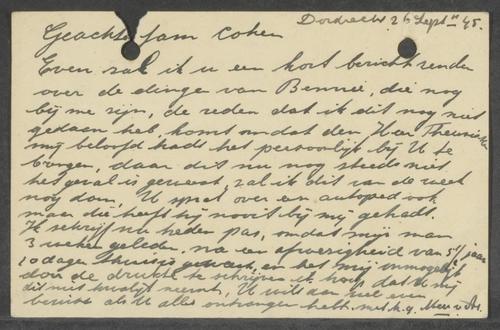 Dordrecht 26 Sept '45.
Geachte fam Cohen
Even zal ik u een kort bericht zenden
over de dingen van Bennie, die nog
bij me zijn, de reden dat ik dit nog niet
gedaan heb, komt omdat den Heer
mij beloofd had het persoonlijk bij U te
brengen, daar dit nu nog steeds niet
het geval is geweest, zal ik dit van de week
nog doen, U spreekt over een autoped ook
maar die heeft hij nooit bij mij gehad.
Ik schrijf nu heden pas, omdat mijn man
3 weken geleden, na een afwezigheid van 5½ jaar
10 dagen thuis is geweest, en het mij onmogelijk
door de drukte te schrijven ik hoop dat U mij
dit niet kwalijk neemt, U wilt zeker wel een
bericht als U alles ontvangen hebt, met h.g. Mevr v.